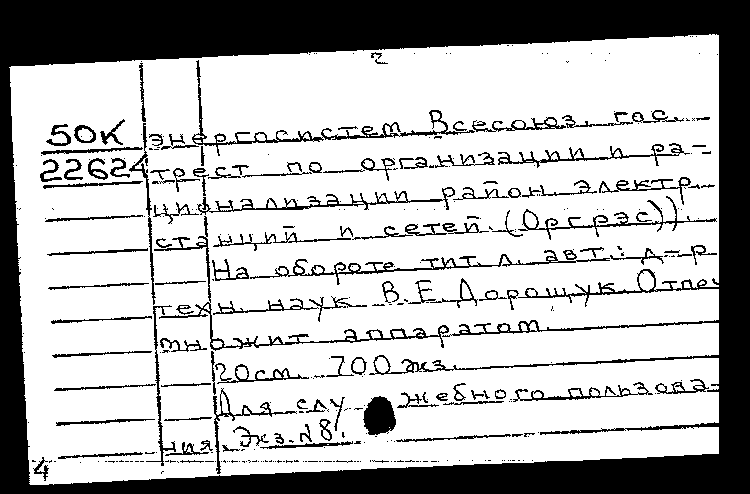 2
50К энергосистем. Всесоюз. гос.
22624 трест по организации и ра-
ционализации район. электр.
станций и сетей. (Оргрэс)).
На обороте тит. л. авт.: д-р
техн. наук В.Е. Дорощук. Отпеч
множит аппаратом.
20см. 700 экз.
Для служебного пользова-
ния. Экз. №8.
4